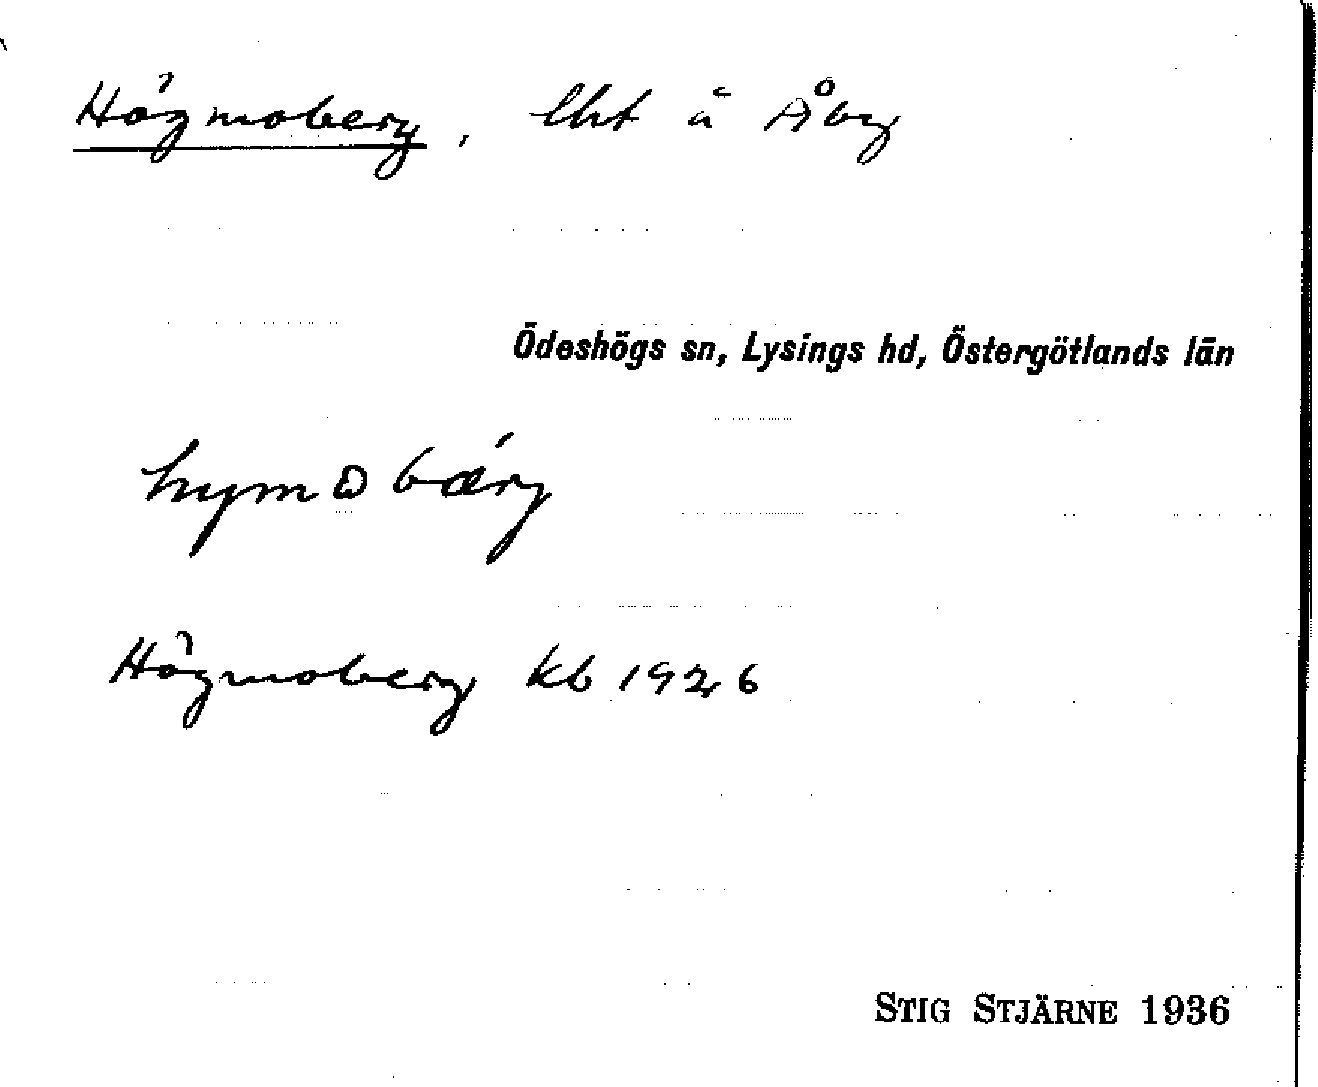 Högmoberg, lht å Åby
Ödeshögs sn, Lysings hd, Östergötlands län
Högmoberg kb 1926
STIG STJÄRNE 1936